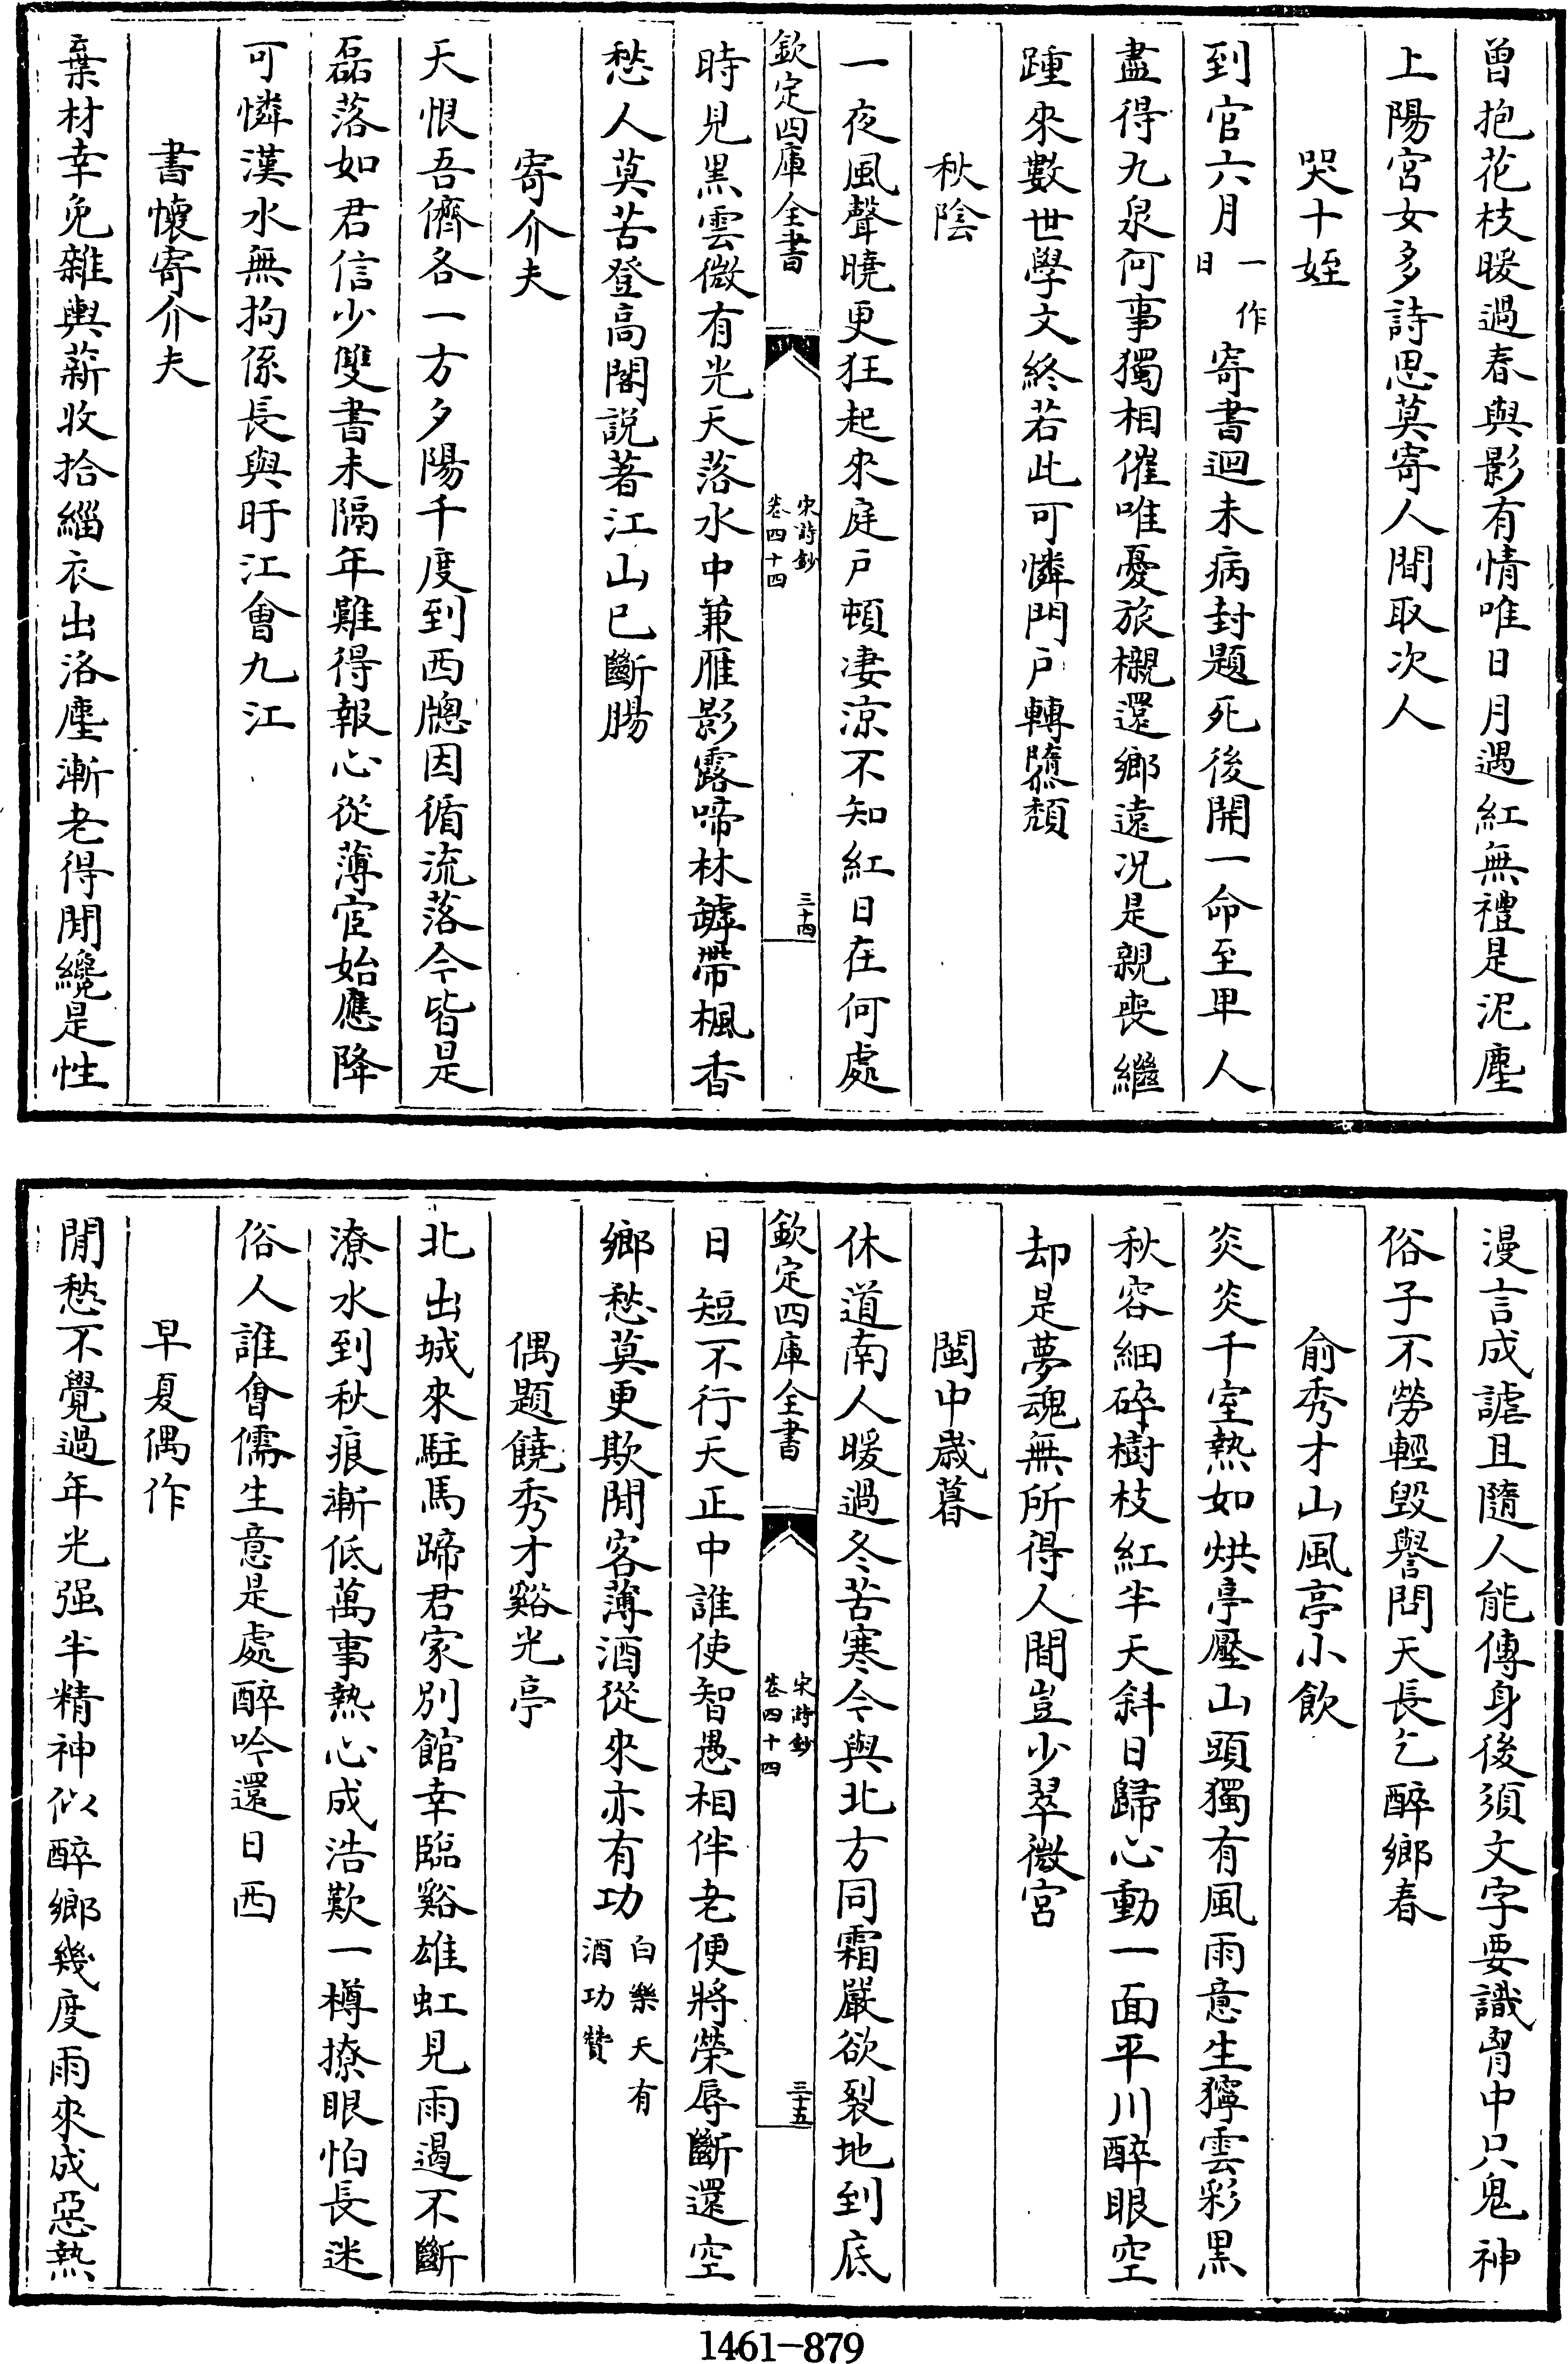 曽抱花枝暖過春與影有情唯日月遇紅無禮是泥塵
上陽宮女多詩思莫寄人間取次人
哭十姪
到官六月一作日寄書迴未病封題死後開一命至卑人
盡得九泉何事獨相催唯憂旅櫬還鄉遠况是親喪繼
踵來數世學文終若此可憐門戶轉隳頹
秋陰
一夜風聲曉更狂起來庭戶頓凄涼不知紅日在何處
欽定四庫全書
宋詩鈔
卷四十四
三十四
時見黑雲微有光天落水中兼雁影露啼林罅帶楓香
愁人莫苦登高閣説著江山已斷腸
寄介夫
天恨吾儕各一方夕陽千度到西牕因循流落今皆是
磊落如君信少雙書未隔年難得報心從薄宦始應降
可憐漢水無拘係長與盱江會九江
書懷寄介夫
棄材幸免雜輿薪收拾緇衣出洛塵漸老得閒纔是性
漫言成謔且隨人能傳身後須文字要識胷中只鬼神
俗子不勞輕毀譽問天長乞醉鄉春
俞秀才山風亭小飲
炎炎千室熱如烘亭壓山頭獨有風雨意生獰雲彩黒
秋容細碎樹枝紅半天斜日歸心動一面平川醉眼空
却是夢魂無所得人間豈少翠微宮
閩中歲暮
休道南人暖過冬苦寒今與北方同霜嚴欲裂地到底
欽定四庫全書
宋詩鈔
卷四十四
三十五
日短不行天正中誰使智愚相伴老便將榮辱斷還空
鄉愁莫更欺閒客薄酒從來亦有功白樂天有酒功贊
偶題饒秀才谿光亭
北出城來駐馬蹄君家別館幸臨谿雄虹見雨遏不斷
潦水到秋痕漸低萬事熱心成浩歎一樽撩眼怕長迷
俗人誰會儒生意是處醉吟還日西
早夏偶作
閒愁不覺過年光强半精神似醉鄉幾度雨來成惡熱
1461-879